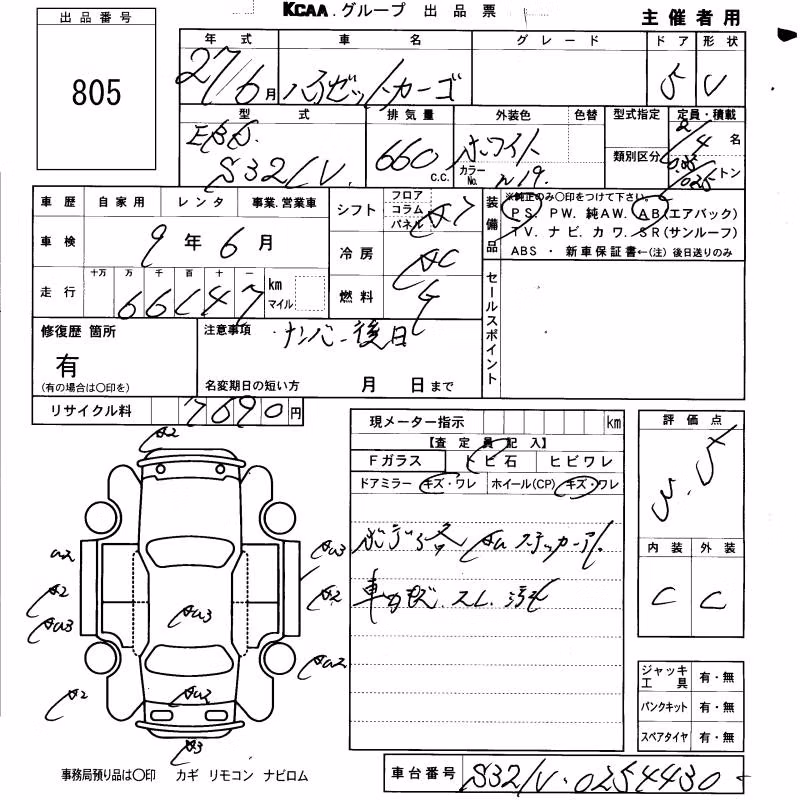 KCAA.グループ 出品票
主催者用
出品番号
805
年式 車名 グレード ドア 形状
27/6月 ハイゼットカーゴ 5 V
型式 排気量 外装色 色替 型式指定 定員・積載
EBD. 660 c.c. ホワイト 2/4 名
S321V. カラーNo. W19. 類別区分 トン
車歴 自家用 レンタ 事業.営業車
シフト フロア コラム パネル
装備品 ※純正のみ〇印をつけて下さい。
PS. PW. 純AW. AB(エアバック)
TV. ナビ. カワ. SR(サンルーフ)
ABS ・ 新車保証書←(注) 後日送りのみ
車検 9年6月
冷房 AC
走行 十万 万 千 百 十 一 66147 km マイル
燃料 G
セールスポイント
修復歴 箇所 注意事項 ナンバー後日
有
(有の場合は〇印を) 名変期日の短い方 月 日まで
リサイクル料 7690円
現メーター指示 km
評価点
【査定員記入】
Fガラス トビ石 ヒビワレ
ドアミラー キズ・ワレ ホイール(CP) キズ・ワレ
A2
内装 外装
C C
ジャッキ工具 有・無
パンクキット 有・無
スペアタイヤ 有・無
事務局預り品は〇印 カギ リモコン ナビロム
車台番号 S321V-0254430